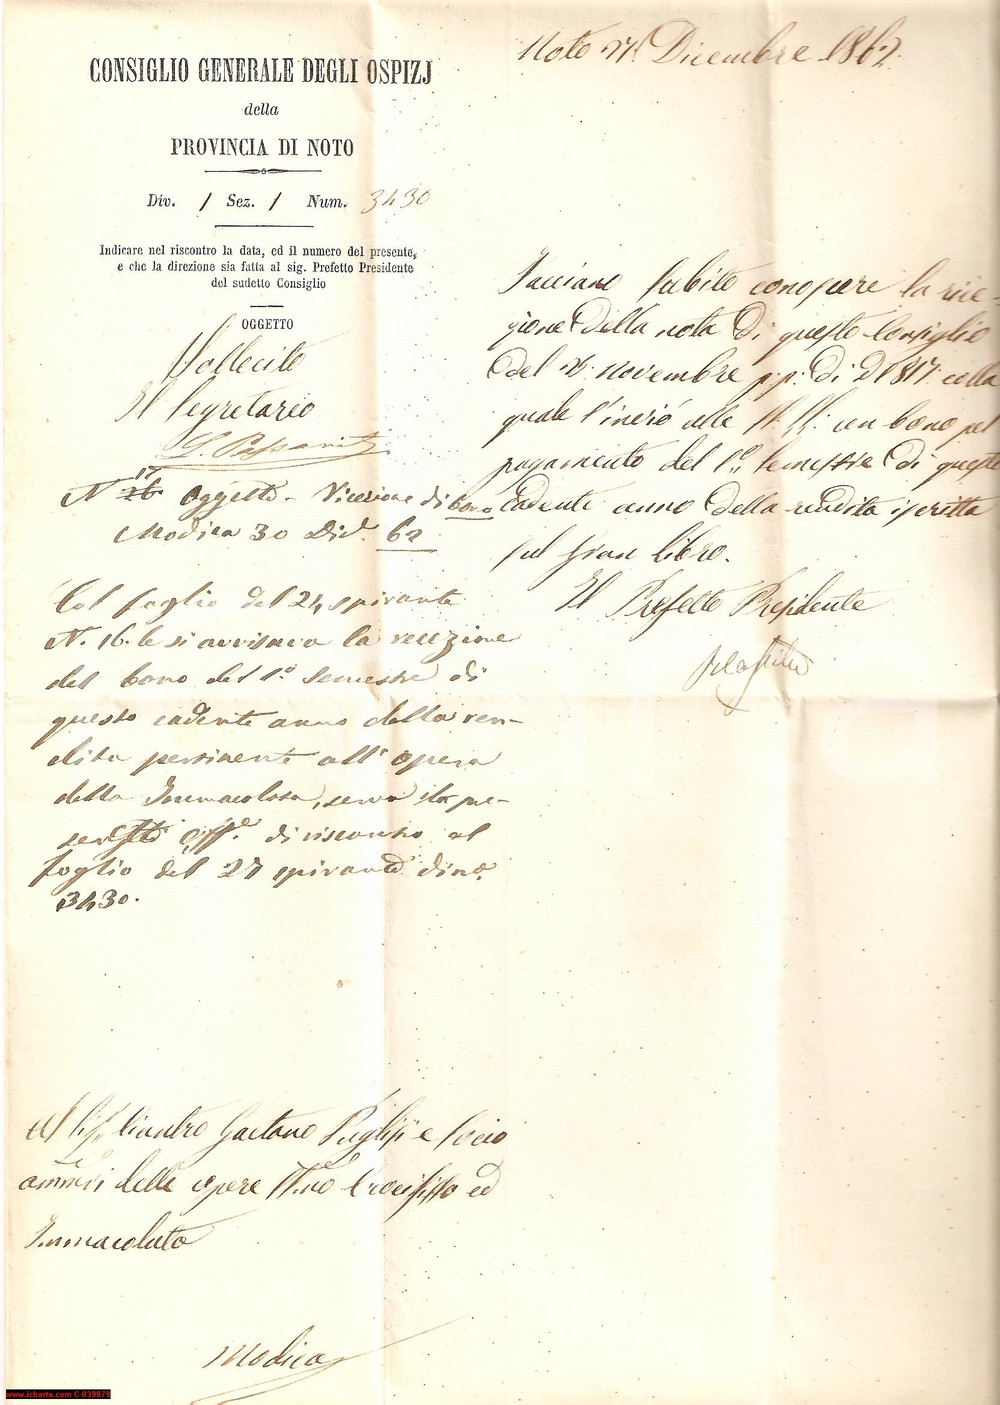 CONSIGLIO GENERALE DEGLI OSPIZJ
della
PROVINCIA DI NOTO
Div. 1 Sez. 1 Num. 3430
Indicare nel riscontro la data, ed il numero del presente,
e che la direzione sia fatta al sig. Prefetto Presidente
del sudetto Consiglio
OGGETTO
Sollecito
Il Segretario
Noto 27 Dicembre 1862
Facciano subito conoscere la rice-
zione della nota di questo Consiglio
del novembre p. p. di colla
quale l'inviò alle SS. LL. un bono pel
pagamento del 1° semestre di questo
cadente anno della rendita iscritta
sul Gran Libro.
Il Prefetto Presidente
N. 17 Oggetto - Ricezione di bono
Modica 30 Dic. 62
Col foglio del 24 spirante
N. 16. le si avvisava la recezione
del bono del 1° Semestre di
questo cadente anno della ren-
dita pertinente all'opera
della Immacolata, serva il pre-
sente di riscontro al
foglio del 27 spirante di n°.
3430.
Gaetano Puglisi e socio
ammri delle opere SS.mo Crocifisso ed
Immacolata
Modica
www.icharta.com C-039879